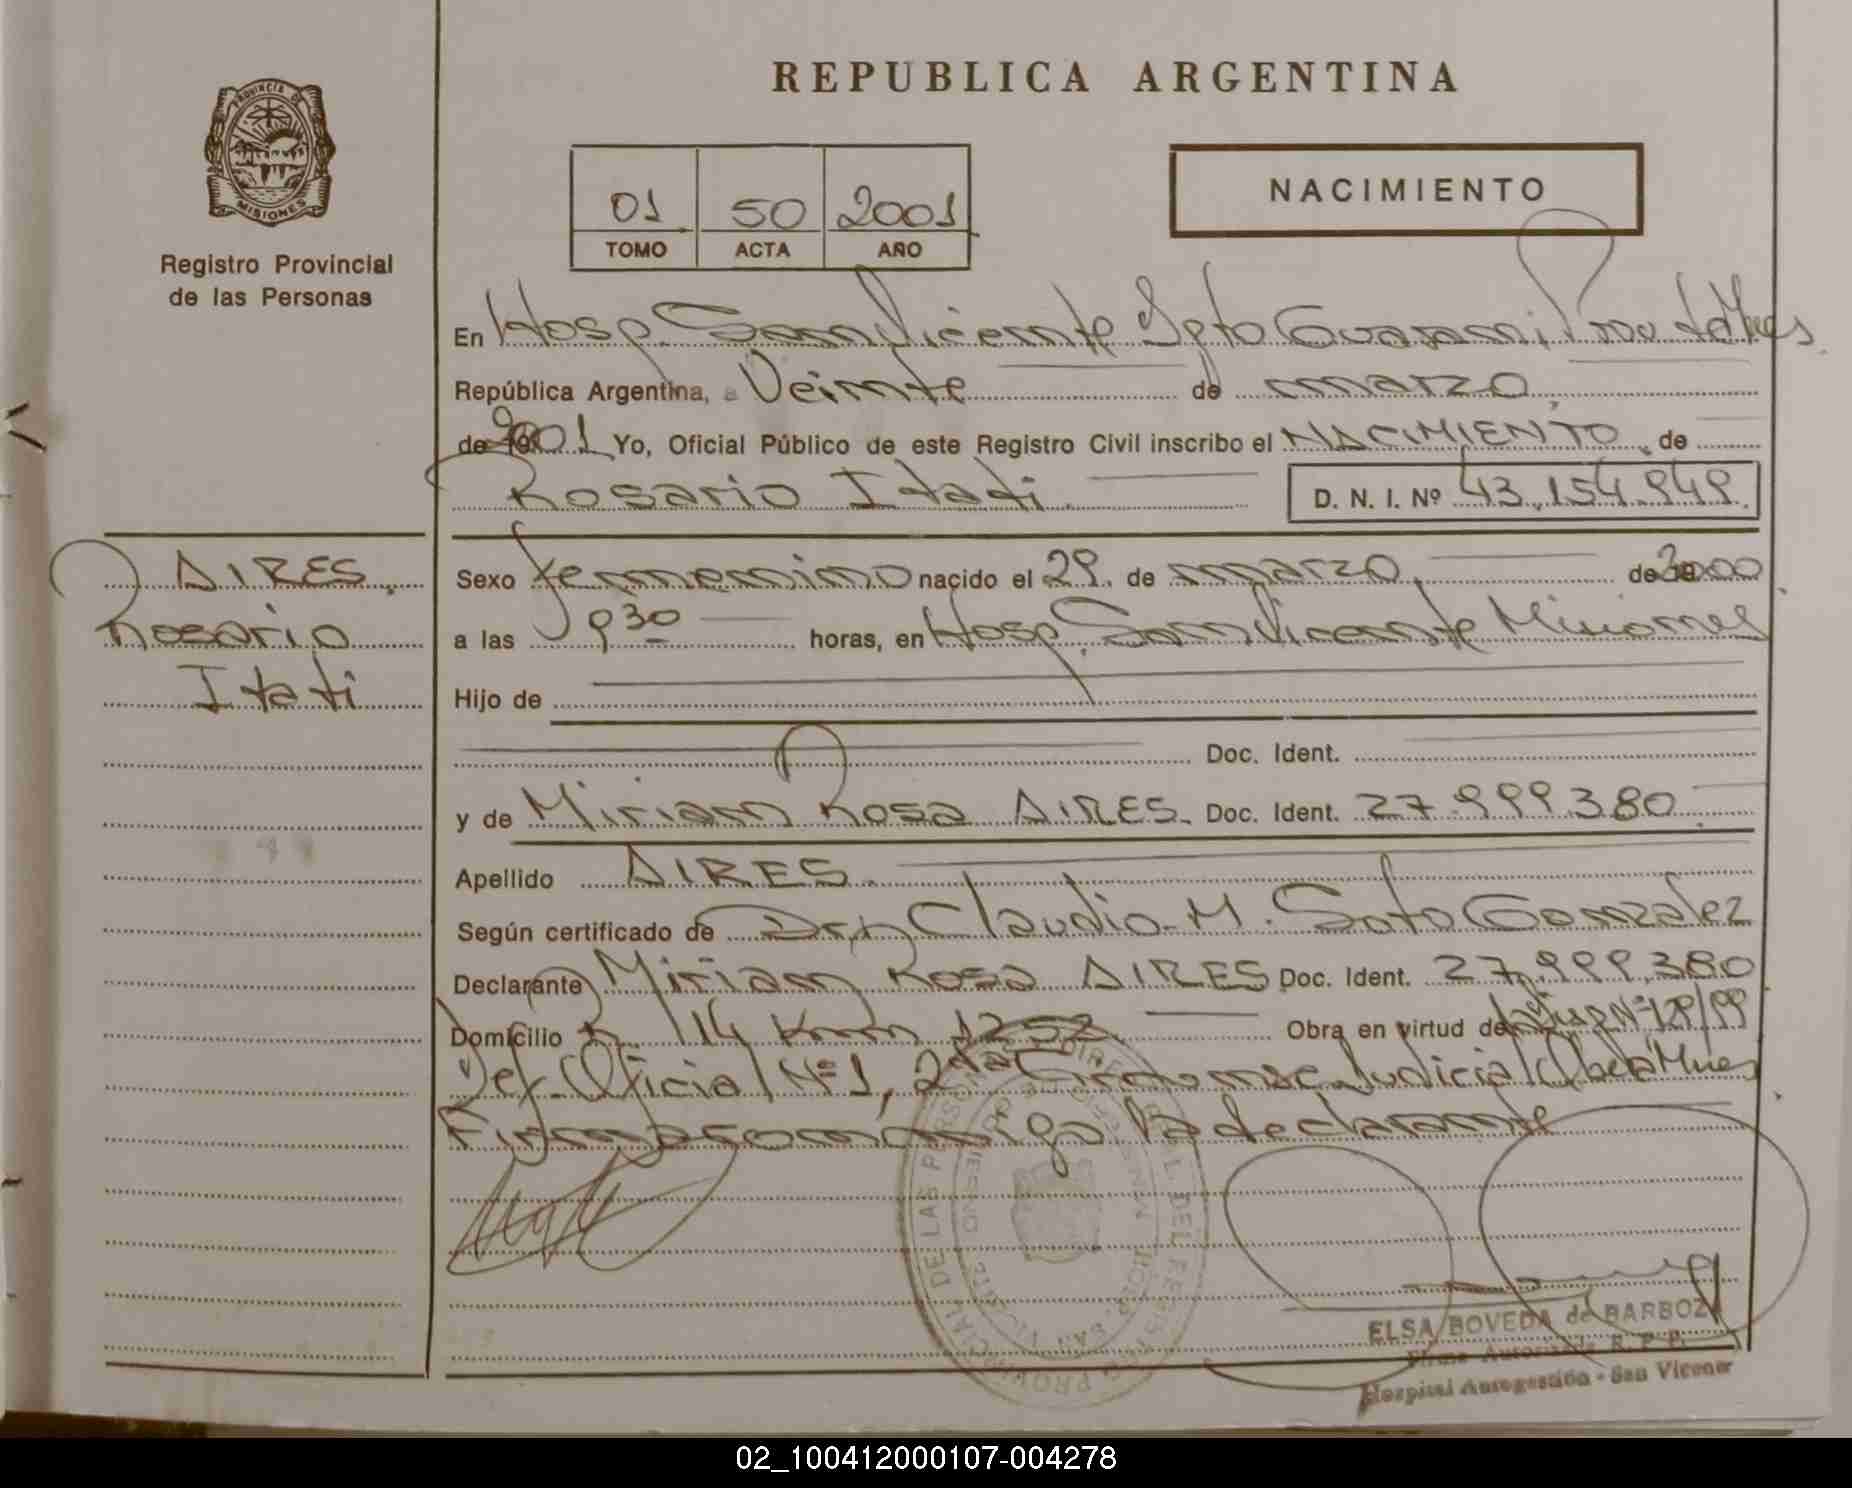 REPUBLICA ARGENTINA
PROVINCIA DE
MISIONES
Registro Provincial
de las Personas
01 50 2001
TOMO ACTA AÑO
NACIMIENTO
En Hosp. San Vicente Dpto Guarani Prov. de Mnes.
República Argentina, a Veinte de marzo
de 2001 Yo, Oficial Público de este Registro Civil inscribo el NACIMIENTO de
Rosario Itati D. N. I. Nº 43.154.949.
AIRES
Rosario
Itati
Sexo femenino nacido el 29 de marzo de 2000
a las 9 30 horas, en Hosp. San Vicente Misiones
Hijo de
Doc. Ident.
y de Miriam Rosa AIRES. Doc. Ident. 27.999.380
Apellido AIRES.
Según certificado de Claudio M. Soto Gonzalez
Declarante Miriam Rosa AIRES Doc. Ident. 27.999.380
Domicilio R. 14 Km 1252 Obra en virtud de Nº 129/99
Def. Oficial Nº 1, 2da Judicial Oberá Mnes
Firma conmigo la declarante
ELSA BOVEDA de BARBOZA
Firma Autorizada R. P. P.
Hospital Autogestión - San Vicente
02_100412000107-004278